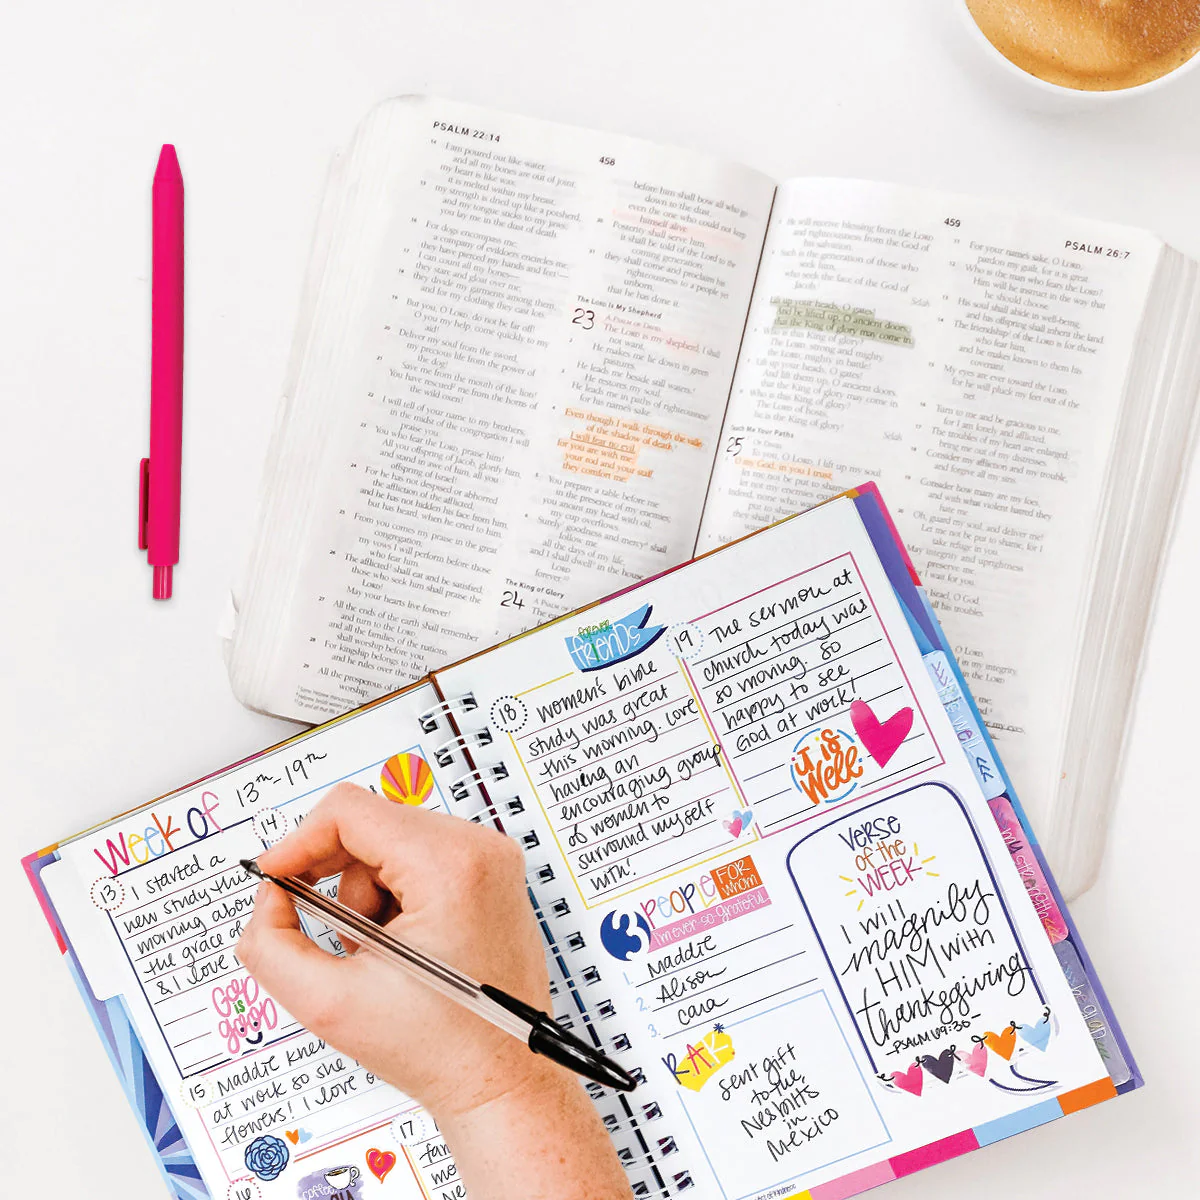 PSALM 22:14
458
14 I am poured out like water,
and all my bones are out of joint;
my heart is like wax;
it is melted within my breast;
15 my strength is dried up like a potsherd,
and my tongue sticks to my jaws;
you lay me in the dust of death.
16 For dogs encompass me;
a company of evildoers encircles me;
17 they have pierced my hands and feet—
I can count all my bones—
they stare and gloat over me;
18 they divide my garments among them,
and for my clothing they cast lots.
19 But you, O LORD, do not be far off!
O you my help, come quickly to my
aid!
20 Deliver my soul from the sword,
my precious life from the power of
the dog!
21 Save me from the mouth of the lion!
You have rescued me from the horns of
the wild oxen!
22 I will tell of your name to my brothers;
in the midst of the congregation I will
praise you:
23 You who fear the LORD, praise him!
All you offspring of Jacob, glorify him,
and stand in awe of him, all you
offspring of Israel!
24 For he has not despised or abhorred
the affliction of the afflicted,
and he has not hidden his face from him,
but has heard, when he cried to him.
25 From you comes my praise in the great
congregation;
my vows I will perform before those
who fear him.
26 The afflicted shall eat and be satisfied;
those who seek him shall praise the
LORD!
May your hearts live forever!
27 All the ends of the earth shall remember
and turn to the LORD,
and all the families of the nations
shall worship before you.
28 For kingship belongs to the
and he rules over the
29 All the prosperous of
worship;
before him shall bow all who go
down to the dust,
even the one who could not keep
himself alive.
30 Posterity shall serve him;
it shall be told of the Lord to the
coming generation;
31 they shall come and proclaim his
righteousness to a people yet
unborn,
that he has done it.
The LORD Is My Shepherd
23 A PSALM OF DAVID.
The LORD is my shepherd; I shall
not want.
2 He makes me lie down in green
pastures.
He leads me beside still waters.
3 He restores my soul.
He leads me in paths of righteousness
for his name's sake.
4 Even though I walk through the valley
of the shadow of death,
I will fear no evil,
for you are with me;
your rod and your staff,
they comfort me.
5 You prepare a table before me
in the presence of my enemies;
you anoint my head with oil;
my cup overflows.
6 Surely goodness and mercy shall
follow me
all the days of my life,
and I shall dwell in the house
LORD
forever.
The King of Glory
24 A PSALM OF
459
PSALM 26:7
He will receive blessing from the LORD
and righteousness from the God of
his salvation.
Such is the generation of those who
seek him,
who seek the face of the God of
Jacob.
Selah
Lift up your heads, O gates!
And be lifted up, O ancient doors,
that the King of glory may come in.
Who is this King of glory?
The LORD, strong and mighty,
the LORD, mighty in battle!
Lift up your heads, O gates!
And lift them up, O ancient doors,
that the King of glory may come in.
Who is this King of glory?
The LORD of hosts,
he is the King of glory!
Selah
Teach Me Your Paths
25 OF DAVID.
To you, O LORD, I lift up my soul.
O my God, in you I trust;
let me not be put to shame;
let not my enemies
Indeed, none who
put to
they shall
11 For your name's sake, O LORD,
pardon my guilt, for it is great.
12 Who is the man who fears the LORD?
Him will he instruct in the way that
he should choose.
13 His soul shall abide in well-being,
and his offspring shall inherit the land.
14 The friendship of the LORD is for those
who fear him,
and he makes known to them his
covenant.
15 My eyes are ever toward the LORD,
for he will pluck my feet out of the
net.
16 Turn to me and be gracious to me,
for I am lonely and afflicted.
17 The troubles of my heart are enlarged;
bring me out of my distresses.
18 Consider my affliction and my trouble,
and forgive all my sins.
19 Consider how many are my foes,
and with what violent hatred they
hate me.
20 Oh, guard my soul, and deliver me!
Let me not be put to shame, for I
take refuge in you.
May integrity and uprightness
preserve me,
for I wait for you.
Israel, O God,
his troubles.
Week of 13th-19th
13 I started a
new study this
morning about
the grace of
& I love
GOD is GOOD
14
15 Maddie knew
at work so she
flowers! I love
16
coffee
17
18 FOREVER friends
women's bible
study was great
this morning. Love
having an
encouraging group
of women to
surround myself
with!
19 The sermon at
church today was
so moving. So
happy to see
God at work!
it is Well
3 PEOPLE FOR whom
I'm ever-so-grateful
1. Maddie
2. Alison
3. Cara
RAK
Sent gift
to the
Nesbitt's
in
Mexico
VERSE
of the
WEEK
I will
magnify
HIM with
thanksgiving
-PSALM 69:30-